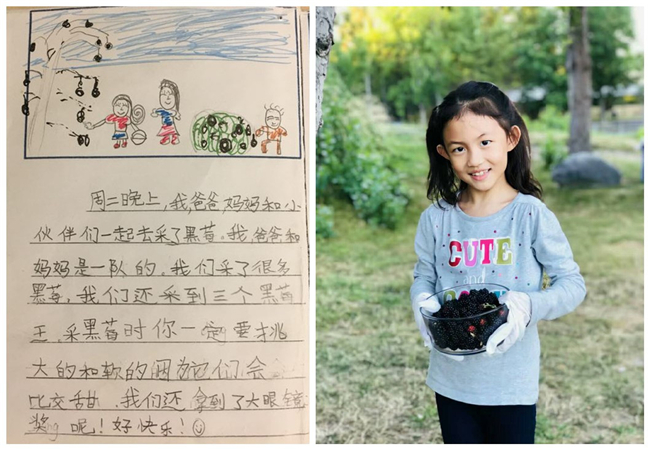 周二晚上,我爸爸妈妈和小
伙伴们一起去采了黑莓。我爸爸和
妈妈是一队的。我们采了很多
黑莓,我们还采到三个黑莓
王,采黑莓时你一定要挑
大的和软的因为它们会
比交甜,我们还拿到了大眼镜
奖呢!好快乐!
CUTE
and